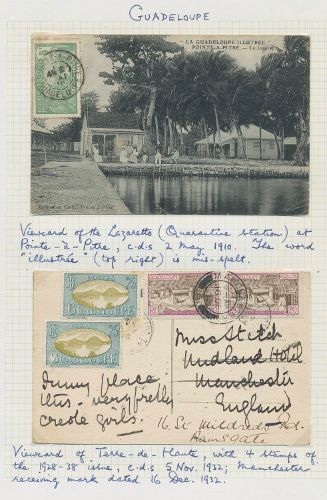 GUADELOUPE
"LA GUADELOUPE ILLUTREE"
POINTE-A-PITRE. — Le Lazaret
Viewcard of the Lazaretto (Quarantine Station) at
Pointe-à-Pitre, c.d.s 2 May 1910. The word
"illustrée" (top right) is mis-spelt.
GUADELOUPE
GUADELOUPE
GUADELOUPE
GUADELOUPE
Miss Stitch
Midland Hotel
Manchester
England
16. St Mildreds Rd.
Ramsgate
Funny place
this. very pretty
creole girls.
Viewcard of Terre-de-Haute, with 4 stamps of
the 1928-38 issue, c.d.s 5 Nov. 1932; Manchester
receiving mark dated 16 Dec. 1932.